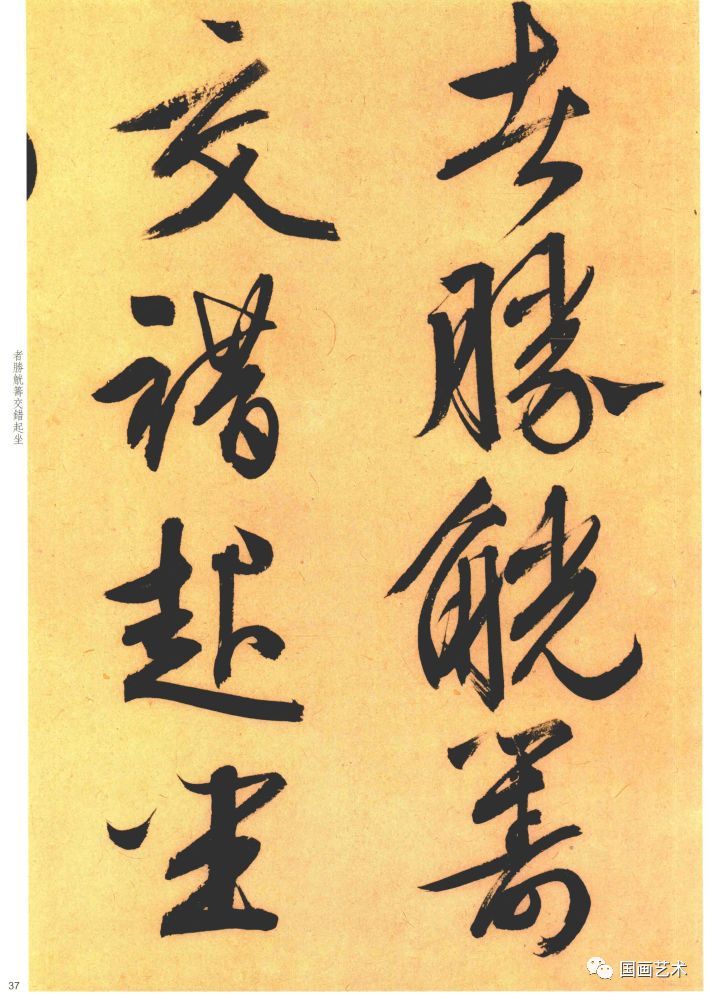 者勝觥籌
交錯起坐
者勝觥籌交錯起坐
37
国画艺术